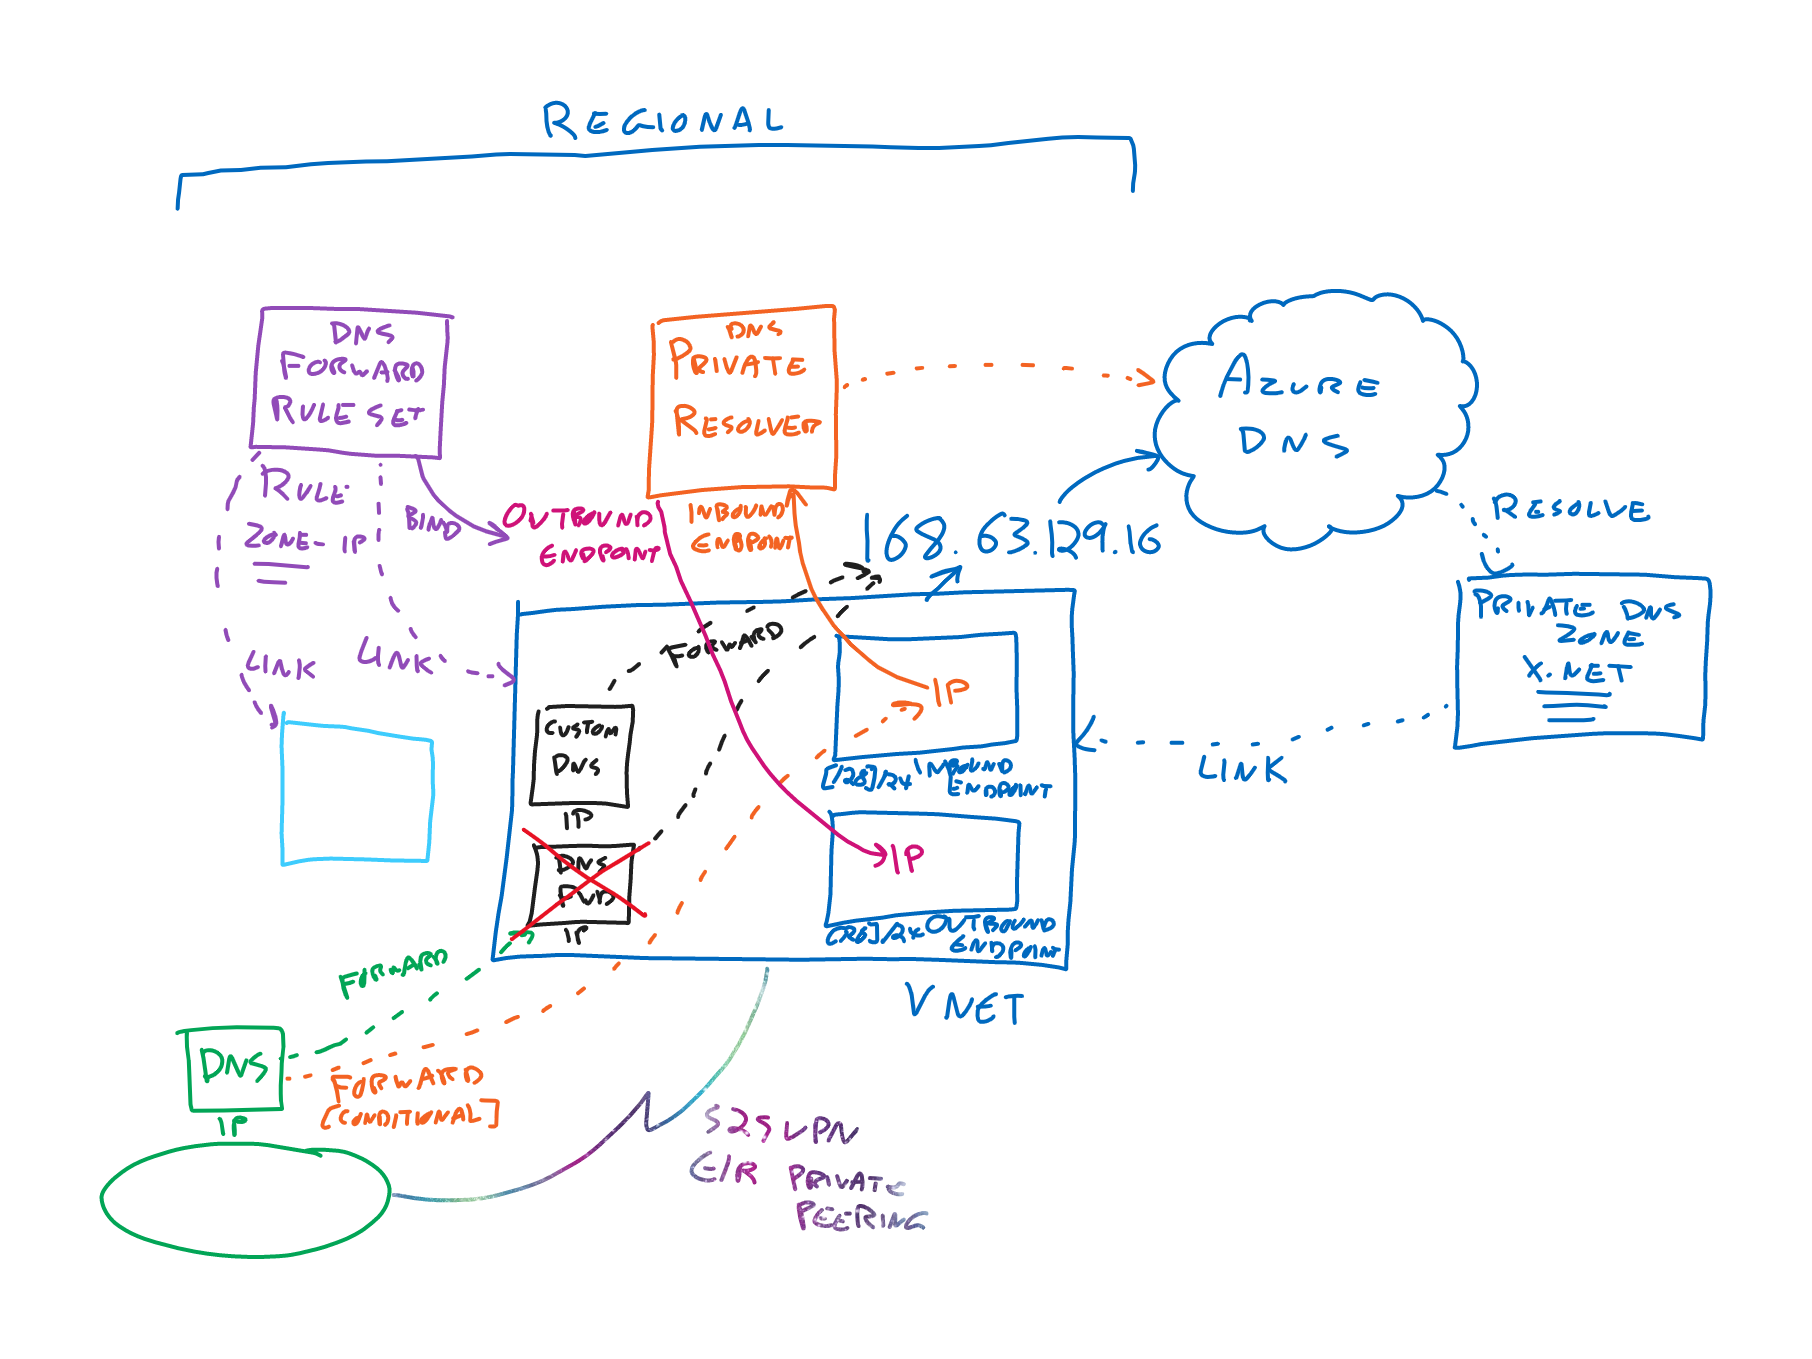 REGIONAL
DNS
FORWARD
RULE SET
DNS
PRIVATE
RESOLVER
AZURE
DNS
RULE
ZONE - IP
BIND
OUTBOUND
ENDPOINT
INBOUND
ENDPOINT
168.63.129.16
RESOLVE
PRIVATE DNS
ZONE
X.NET
LINK
LINK
FORWARD
CUSTOM
DNS
IP
DNS
FWD
IP
IP
[/28]/24 INBOUND
ENDPOINT
IP
[/28]/24 OUTBOUND
ENDPOINT
LINK
VNET
FORWARD
DNS
IP
FORWARD
[CONDITIONAL]
S2S VPN
E/R PRIVATE
PEERING